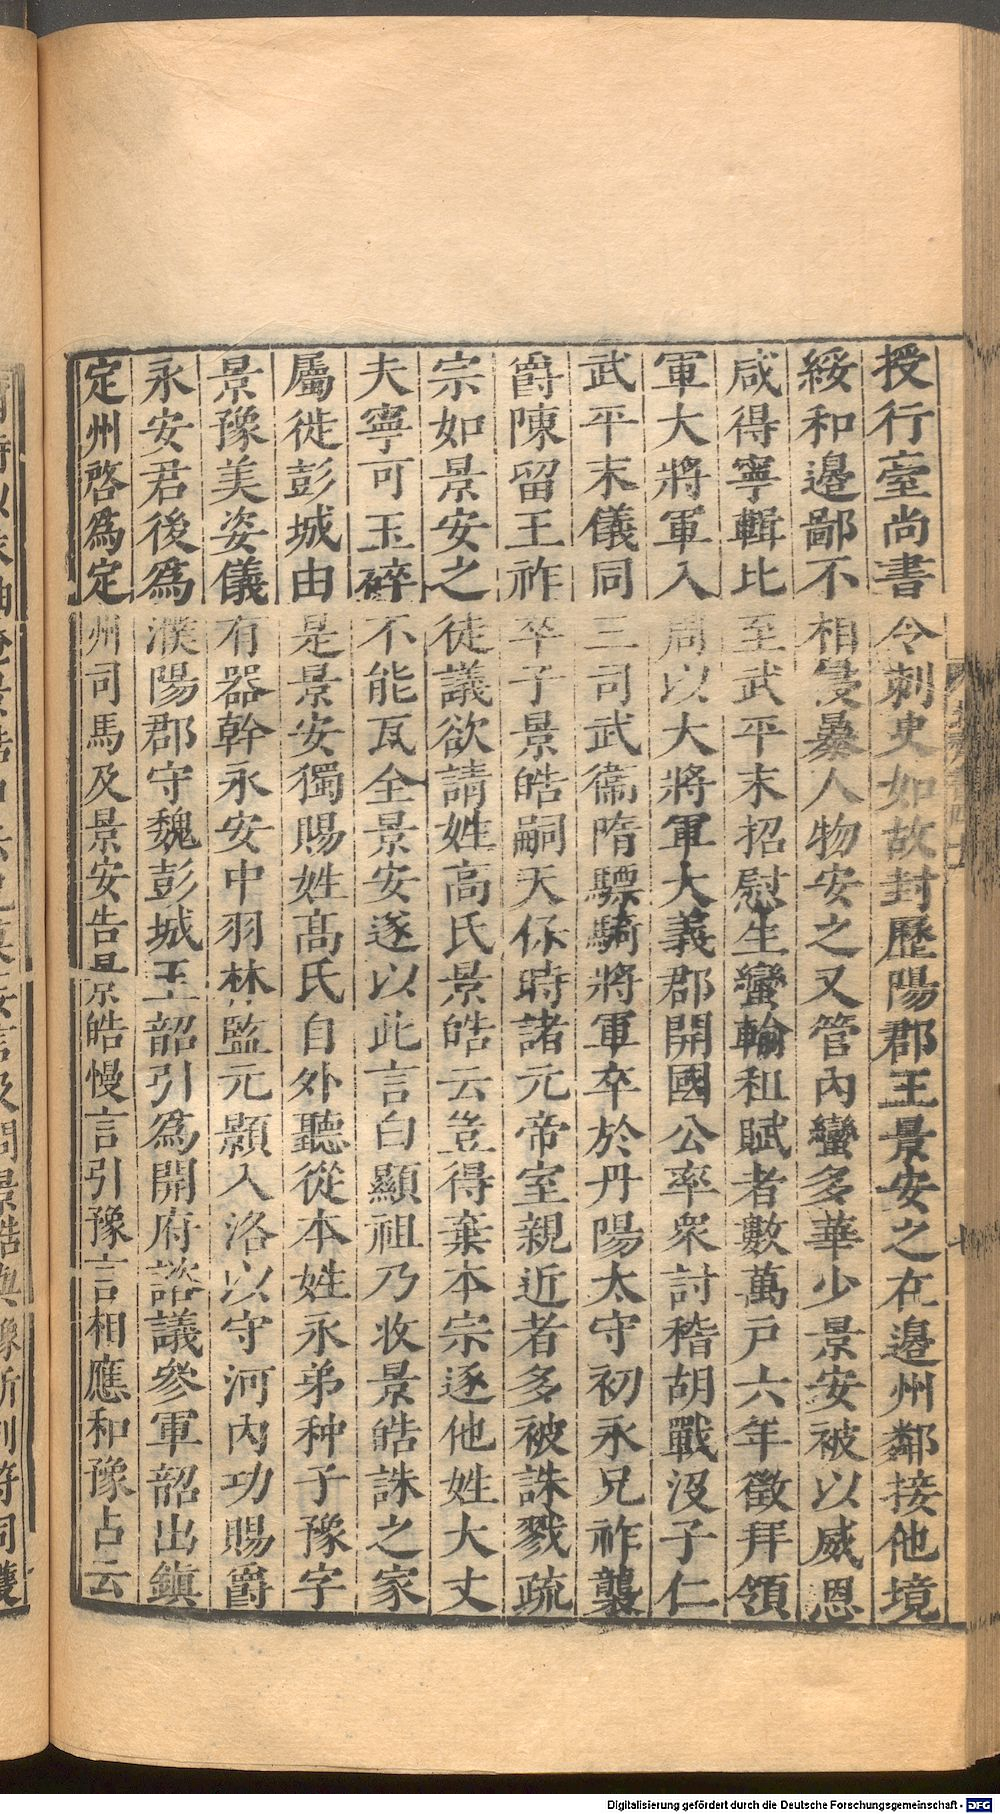 授行臺尚書令刺史如故封歷陽郡王景安之在邉州鄰接他境
綏和邉鄙不相侵暴人物安之又管內蠻多華少景安被以威恩
咸得寧輯比至武平末招慰生蠻輸租賦者數萬戶六年徵拜領
軍大將軍入周以大將軍大義郡開國公率衆討稽胡戰沒子仁
武平末儀同三司武衞隋驃騎將軍卒於丹陽太守初永兄祚襲
爵陳留王祚卒子景皓嗣天保時諸元帝室親近者多被誅戮疏
宗如景安之徒議欲請姓高氏景皓云豈得棄本宗逐他姓大丈
夫寧可玉碎不能瓦全景安遂以此言白顯祖乃收景皓誅之家
屬徙彭城由是景安獨賜姓髙氏自外聽從本姓永弟种子豫字
景豫美姿儀有器幹永安中羽林監元顥入洛以守河內功賜爵
永安君後爲濮陽郡守魏彭城王韶引爲開府諮議參軍韶出鎭
定州啓爲定州司馬及景安告景皓慢言引豫言相應和豫占云
Digitalisierung gefördert durch die Deutsche Forschungsgemeinschaft - DFG